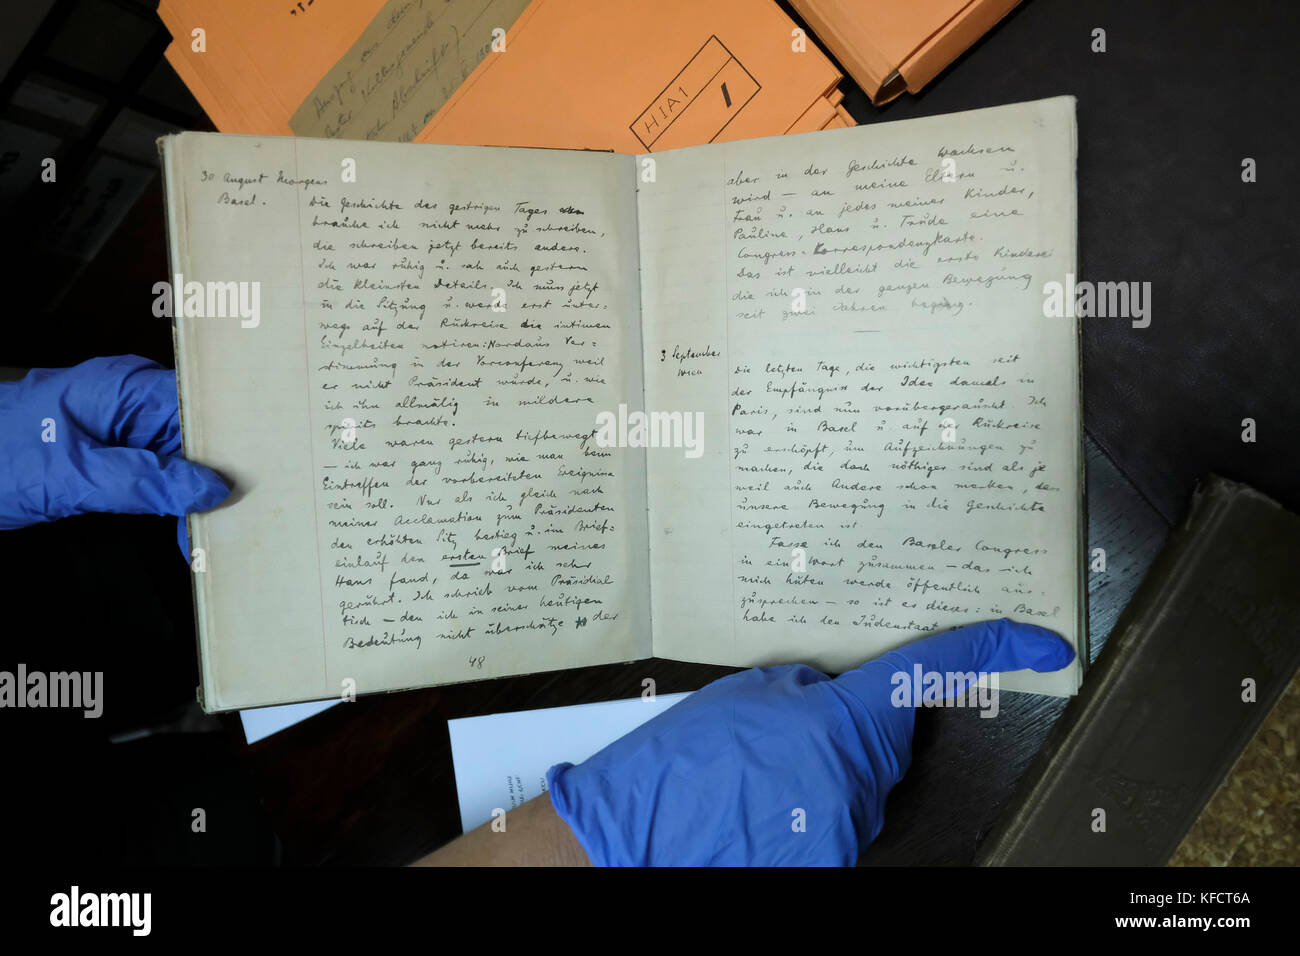 HIA1
1
30 August Morgens
Basel.
Die Geschichte des gestrigen Tages
brauche ich nicht mehr zu schreiben,
die schreiben jetzt bereits andere.
Ich war ruhig u. sah auch gestern
die kleinsten Details. Ich muss jetzt
in die Sitzung u. werde erst unter=
wegs auf der Rückreise die intimen
Einzelheiten notiren: Nordaus Ver=
stimmung in der Vorconferenz weil
er nicht Präsident wurde, u. wie
ich ihn allmälig in mildere
spirits brachte.
Viele waren gestern tiefbewegt
— ich war ganz ruhig, wie man beim
Eintreffen der vorbereiteten Ereignisse
sein soll. Nur als ich gleich nach
meiner Acclamation zum Präsidenten
den erhöhten Sitz bestieg u. im Brief=
einlauf den ersten Brief meines
Hans fand, da war ich sehr
gerührt. Ich schrieb vom Präsidial
tisch — den ich in seiner heutigen
Bedeutung nicht überschätze der
48
aber in der Geschichte wachsen
wird — an meine Eltern u.
Frau u. an jedes meiner Kinder,
Pauline, Hans u. Trude eine
Congress-Korrespondenzkarte.
Das ist vielleicht die erste Kinderei
die ich in der ganzen Bewegung
seit zwei Jahren beging.
3 September
Wien
Die letzten Tage, die wichtigsten seit
der Empfängniss der Idee damals in
Paris, sind nun vorübergerauscht. Ich
war in Basel u. auf der Rückreise
zu erschöpft, um Aufzeichnungen zu
machen, die doch nöthiger sind als je
weil auch Andere schon merken, dass
unsere Bewegung in die Geschichte
eingetreten ist.
Fasse ich den Baseler Congress
in ein Wort zusammen — das ich
mich hüten werde öffentlich aus=
zusprechen — so ist es dieses: in Basel
habe ich den Judenstaat
alamy
Image ID: KFCT6A
www.alamy.com